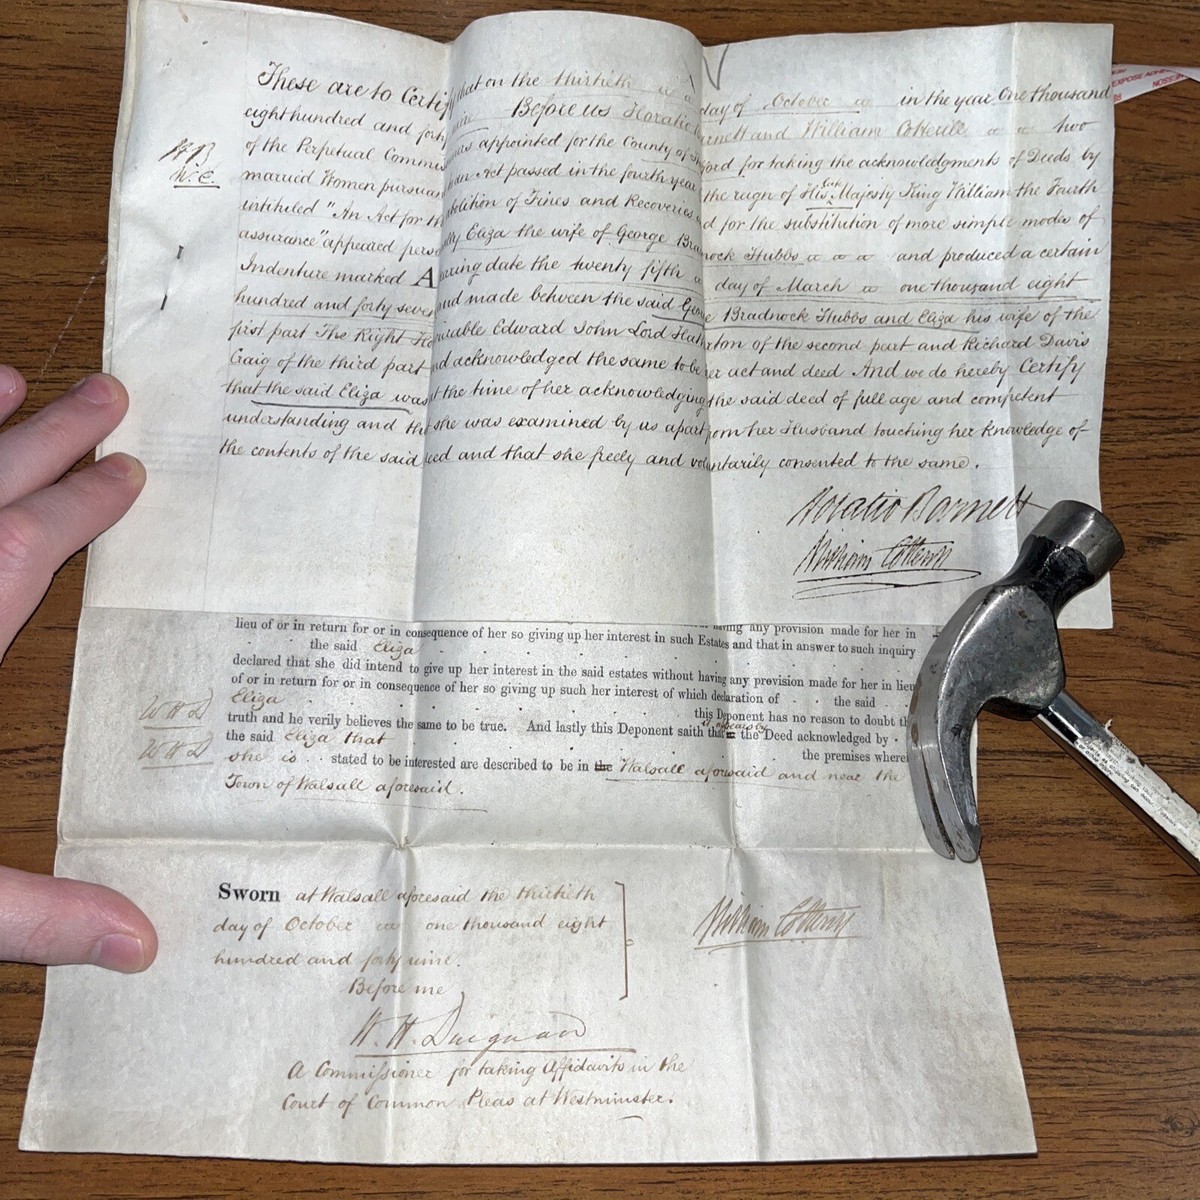 These are to Certify that on the thirtieth day of October in the year One thousand
eight hundred and forty nine Before us Horatio Barnett and William Cotterill two
of the Perpetual Commis appointed for the County of ford for taking the acknowledgments of Deeds by
married Women pursuan to an Act passed in the fourth year the reign of His late Majesty King William the Fourth
intituled "An Act for the abolition of Fines and Recoveries and for the substitution of more simple modes of
assurance" appeared personally Eliza the wife of George Bradnock Stubbs and produced a certain
Indenture marked A bearing date the twenty fifth day of March one thousand eight
hundred and forty seven and made between the said George Bradnock Stubbs and Eliza his wife of the
first part The Right Honorable Edward John Lord Hatherton of the second part and Richard Davis
Craig of the third part and acknowledged the same to be her act and deed And we do hereby Certify
that the said Eliza was at the time of her acknowledging the said deed of full age and competent
understanding and that she was examined by us apart from her Husband touching her knowledge of
the contents of the said deed and that she freely and voluntarily consented to the same.
H B
W. C.
Horatio Barnett
William Cotterill
lieu of or in return for or in consequence of her so giving up her interest in such Estates and that in answer to such inquiry
having any provision made for her in
the said Eliza
declared that she did intend to give up her interest in the said estates without having any provision made for her in lieu
of or in return for or in consequence of her so giving up such her interest of which declaration of the said
Eliza this Deponent has no reason to doubt the
truth and he verily believes the same to be true. And lastly this Deponent saith that it appears by the Deed acknowledged by
the said Eliza that the premises where
she is stated to be interested are described to be in the Walsall aforesaid and near the
Town of Walsall aforesaid.
W H D
W H D
Sworn at Walsall aforesaid the thirtieth
day of October one thousand eight
hundred and forty nine.
Before me
William Cotterill
W. H. Duignan
A Commissioner for taking Affidavits in the
Court of Common Pleas at Westminster.